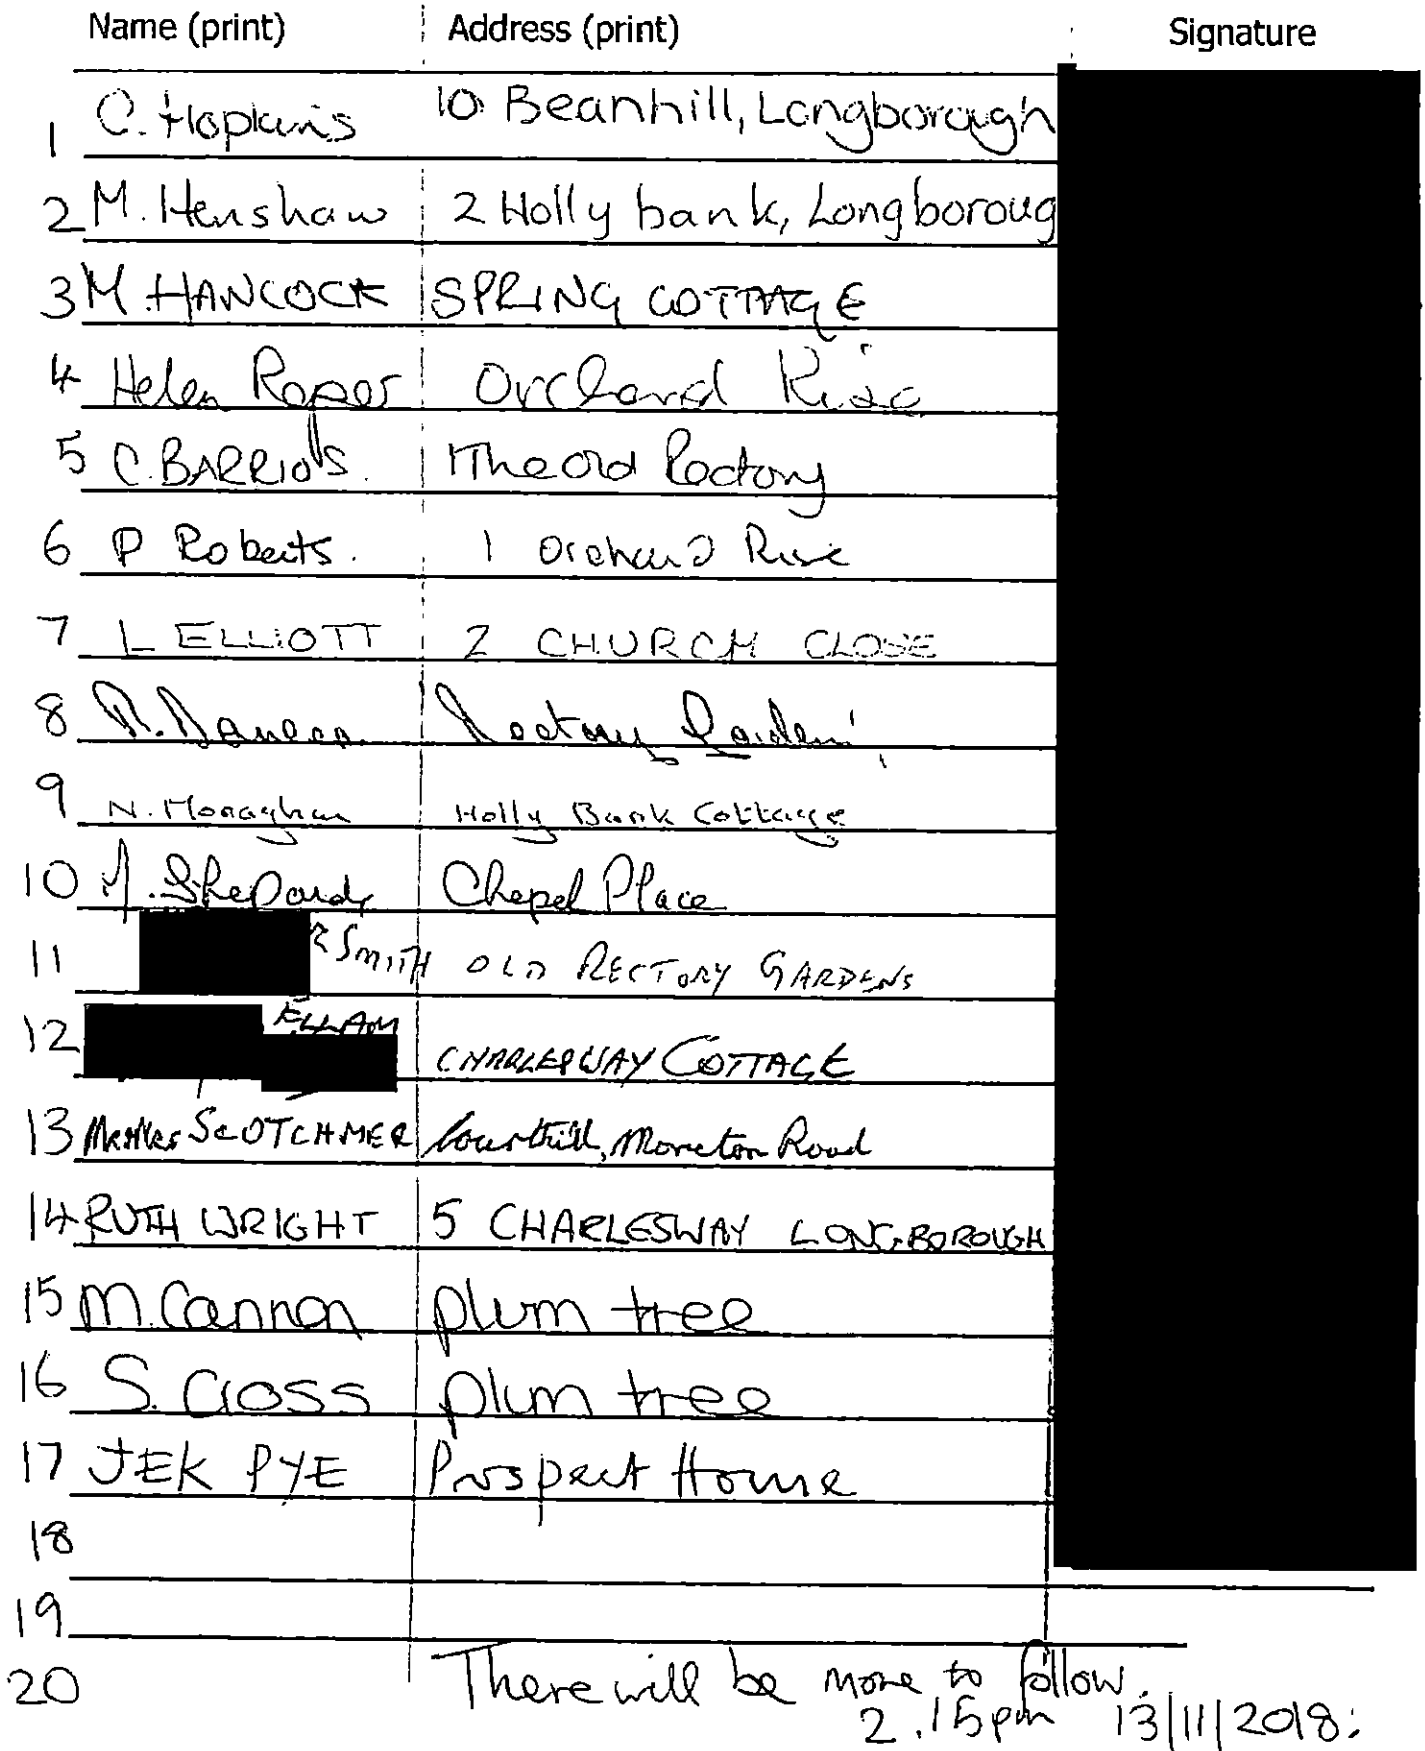 Name (print) Address (print) Signature
1 C. Hopkins 10 Beanhill, Longborough
2 M. Henshaw 2 Holly bank, Longboroug
3 M. HANCOCK SPRING COTTAGE
4 Helen Roper Orchard Rise
5 C. BARRIOS. The Old Rectory
6 P Roberts. 1 Orchard Rise
7 L ELLIOTT 2 CHURCH CLOSE
8 Rectory Gardens
9 N. Monaghan Holly Bank Cottage
10 A. Shepard, Chapel Place
11 R SMITH OLD RECTORY GARDENS
12 ELLAM CHARLESWAY COTTAGE
13 SCOTCHMER Courthill, Moreton Road
14 RUTH WRIGHT 5 CHARLESWAY LONGBOROUGH
15 M. Cannon plum tree
16 S. Cross plum tree
17 JEK PYE Prospect House
18
19
20 There will be more to follow.
2.15pm 13/11/2018.